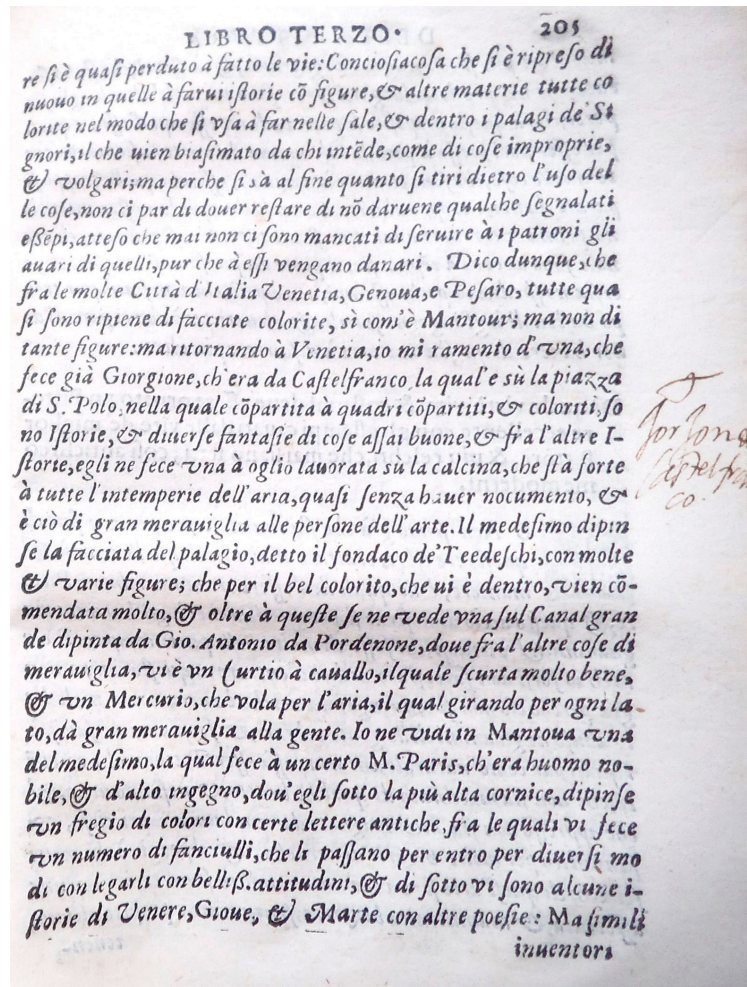 LIBRO TERZO. 205
re si è quasi perduto à fatto le vie: Conciosiacosa che si è ripreso di
nuouo in quelle à farui istorie cō figure, & altre materie tutte co
lorite nel modo che si vsa à far nelle sale, & dentro i palagi de' Si
gnori, il che uien biasimato da chi intēde, come di cose improprie,
& volgari; ma perche si sà al fine quanto si tiri dietro l'uso del
le cose, non ci par di douer restare di nō daruene qualche segnalati
essēpi, atteso che mai non ci sono mancati di seruire à i patroni gli
auari di quelli, pur che à essi vengano danari. Dico dunque, che
fra le molte Città d'Italia Venetia, Genoua, e Pesaro, tutte qua
si sono ripiene di facciate colorite, sì com'è Mantour; ma non di
tante figure: ma ritornando à Venetia, io mi ramento d'vna, che
fece già Giorgione, ch'era da Castelfranco, la qual'e sù la piazza
di S. Polo, nella quale cōpartita à quadri cōpartiti, & coloriti, so
no Istorie, & diuerse fantasie di cose assai buone, & fra l'altre I-
storie, egli ne fece vna à oglio lauorata sù la calcina, che stà forte
à tutte l'intemperie dell'aria, quasi senza hauer nocumento, &
è ciò di gran merauiglia alle persone dell'arte. Il medesimo dipin
se la facciata del palagio, detto il fondaco de' Teedeschi, con molte
& varie figure; che per il bel colorito, che ui è dentro, vien cō-
mendata molto, & oltre à queste se ne vede vna sul Canal gran
de dipinta da Gio. Antonio da Pordenone, doue fra l'altre cose di
merauiglia, vi è vn Curtio à cauallo, ilquale scurta molto bene,
& vn Mercurio, che vola per l'aria, il qual girando per ogni la-
to, dà gran merauiglia alla gente. Io ne vidi in Mantoua vna
del medesimo, la qual fece à un certo M. Paris, ch'era huomo no-
bile, & d'alto ingegno, dou'egli sotto la più alta cornice, dipinse
vn fregio di colori con certe lettere antiche, fra le quali vi fece
vn numero di fanciulli, che li passano per entro per diuersi mo
di con legarli con belliß. attitudini, & di sotto vi sono alcune i-
storie di Venere, Gioue, & Marte con altre poesie: Ma simili
inuentori